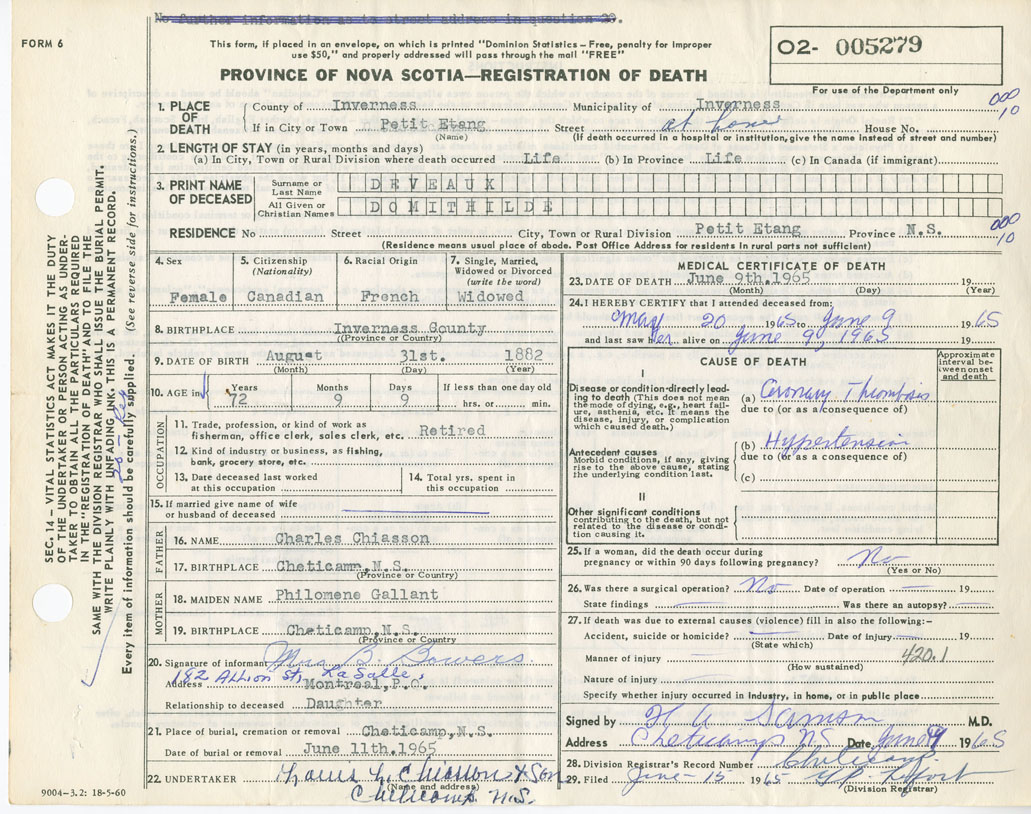 No further information as to street address in question 20.
FORM 6
This form, if placed in an envelope, on which is printed "Dominion Statistics – Free, penalty for improper
use $50," and properly addressed will pass through the mail "FREE"
PROVINCE OF NOVA SCOTIA—REGISTRATION OF DEATH
O2- 005279
For use of the Department only
000
10
1. PLACE OF DEATH
County of Inverness Municipality of Inverness
If in City or Town Petit Etang Street at home House No.
(Name) (If death occurred in a hospital or institution, give the name instead of street and number)
2. LENGTH OF STAY (in years, months and days)
(a) In City, Town or Rural Division where death occurred Life (b) In Province Life (c) In Canada (if immigrant)
3. PRINT NAME OF DECEASED
Surname or Last Name DEVEAUX
All Given or Christian Names DOMITHILDE
RESIDENCE No Street City, Town or Rural Division Petit Etang Province N.S.
000
10
(Residence means usual place of abode. Post Office Address for residents in rural parts not sufficient)
4. Sex
Female
5. Citizenship
(Nationality)
Canadian
6. Racial Origin
French
7. Single, Married,
Widowed or Divorced
(write the word)
Widowed
8. BIRTHPLACE Inverness County
(Province or Country)
9. DATE OF BIRTH August 31st. 1882
(Month) (Day) (Year)
10. AGE in
Years Months Days If less than one day old
72 9 9 hrs. or min.
OCCUPATION
11. Trade, profession, or kind of work as
fisherman, office clerk, sales clerk, etc. Retired
12. Kind of industry or business, as fishing,
bank, grocery store, etc.
13. Date deceased last worked
at this occupation
14. Total yrs. spent in
this occupation
15. If married give name of wife
or husband of deceased
FATHER
16. NAME Charles Chiasson
17. BIRTHPLACE Cheticamp, N.S.
(Province or Country)
MOTHER
18. MAIDEN NAME Philomene Gallant
19. BIRTHPLACE Cheticamp, N.S.
(Province or Country
20. Signature of informant Mrs B Bowers
182 Allion St, LaSalle,
Address Montreal, P.Q.
Relationship to deceased Daughter
21. Place of burial, cremation or removal Cheticamp, N.S.
Date of burial or removal June 11th.1965
22. UNDERTAKER Chiasson & Son
(Name and address)
Cheticamp N.S.
9004–3.2: 18-5-60
MEDICAL CERTIFICATE OF DEATH
23. DATE OF DEATH June 9th.1965 19
(Month) (Day) (Year)
24. I HEREBY CERTIFY that I attended deceased from:
May 20 1965 to June 9 1965
and last saw her alive on June 9, 1965
CAUSE OF DEATH
Approximate
interval be-
tween onset
and death
I
Disease or condition-directly lead-
ing to death (This does not mean
the mode of dying, e.g., heart fail-
ure, asthenia, etc. It means the
disease, injury, or complication
which caused death.)
(a) Coronary Thrombosis
due to (or as a consequence of)
Antecedent causes
Morbid conditions, if any, giving
rise to the above cause, stating
the underlying condition last.
(b) Hypertension
due to (or as a consequence of)
(c)
II
Other significant conditions
contributing to the death, but not
related to the disease or condi-
tion causing it.
25. If a woman, did the death occur during
pregnancy or within 90 days following pregnancy? No
(Yes or No)
26. Was there a surgical operation? No Date of operation 19
State findings Was there an autopsy?
27. If death was due to external causes (violence) fill in also the following:–
Accident, suicide or homicide? Date of injury 19
(State which)
Manner of injury 420.1
(How sustained)
Nature of injury
Specify whether injury occurred in industry, in home, or in public place
Signed by H A Samson M.D.
Address Cheticamp NS Date June 9 1965
28. Division Registrar's Record Number Cheticamp
29. Filed June-15 1965
(Division Registrar)
SEC. 14 – VITAL STATISTICS ACT MAKES IT THE DUTY
OF THE UNDERTAKER OR PERSON ACTING AS UNDER-
TAKER TO OBTAIN ALL THE PARTICULARS REQUIRED
IN THE "REGISTRATION OF DEATH" AND TO FILE THE
SAME WITH THE DIVISION REGISTRAR WHO SHALL ISSUE THE BURIAL PERMIT.
WRITE PLAINLY WITH UNFADING INK. THIS IS A PERMANENT RECORD.
Every item of information should be carefully supplied. (See reverse side for instructions.)